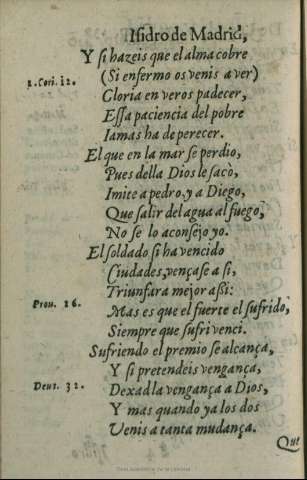 Isidro de Madrid,
Y si hazeis que el alma cobre
2. Cori. 12.
(Si enfermo os venis a ver)
Gloria en veros padecer,
Essa paciencia del pobre
Iamas ha de perecer.
El que en la mar se perdio,
Pues della Dios le sacò,
Imite a pedro, y a Diego,
Que salir del agua al fuego,
No se lo aconsejo yo.
El soldado si ha vencido
Ciudades, vençase a si,
Triunfara mejor aßi:
Prou. 16.
Mas es que el fuerte el sufrido,
Siempre que sufri venci.
Sufriendo el premio se alcança,
Y si pretendeis vengança,
Deut. 32.
Dexad la vengança a Dios,
Y mas quando ya los dos
Venis a tanta mudança.
Que